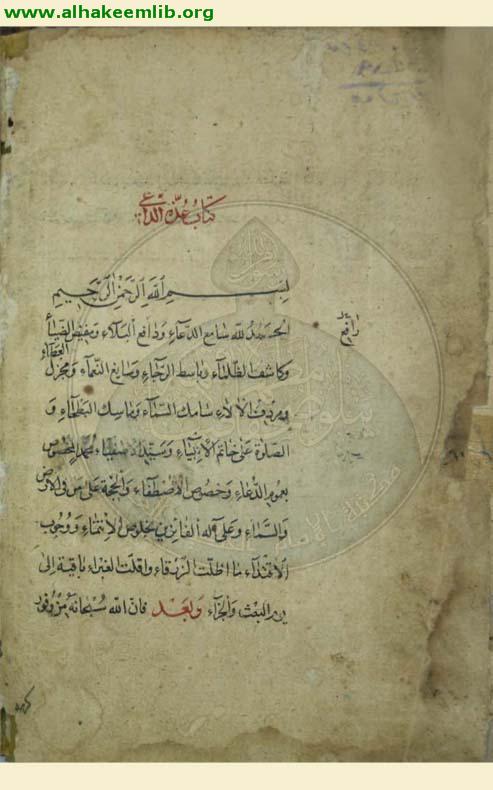 www.alhakeemlib.org
كتاب عدة الداعي
بسم الله الرحمن الرحيم
الحمد لله سامع الدعاء ودافع البلاء ومفيض الضياء
وكاشف الظلماء وباسط الرجاء وسابغ النعماء ومجزل العطاء
ومردف الآلاء سامك السماء وماسك البطحاء و
الصلوة على خاتم الأنبياء وسيد الاصفياء محمد المخصوص
بعموم الدعاء وخصوص الاصطفاء والحجة على من في الارض
والسماء وعلى آله الفائزين بخلوص الانتماء ووجوب
الاقتداء ما اظلت الزرقاء واقلت الغبراء باقية الى
يوم البعث والجزاء وبعد فان الله سبحانه من وفور
رافع
كرمه